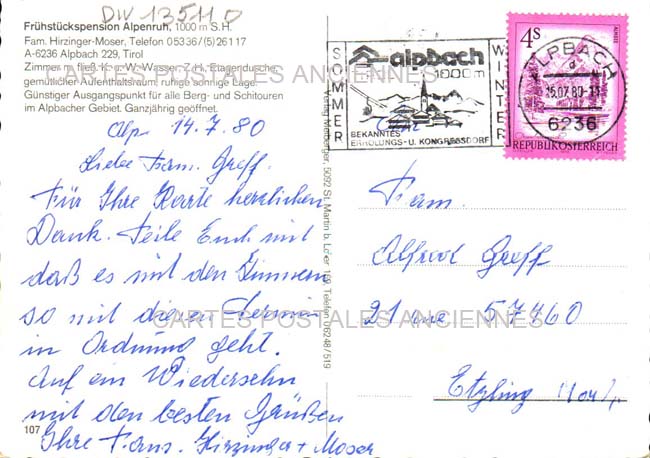 DW 13511 D
Frühstückspension Alpenruh, 1000 m S.H.
Fam. Hirzinger-Moser, Telefon 05336/(5)26117
A-6236 Alpbach 229, Tirol
Zimmer m. fließ. K. u. W. Wasser, Z.H., Etagendusche,
gemütlicher Aufenthaltsraum, ruhige sonnige Lage.
Günstiger Ausgangspunkt für alle Berg- und Schitouren
im Alpbacher Gebiet. Ganzjährig geöffnet.
CARTES POSTALES ANCIENNES
Alp. 14.7.80
Liebe Fam. Greff.
Für Ihre Karte herzlichen
Dank. Teile Euch mit
daß es mit den Zimmern
so mit diesen Termin
in Ordnung geht.
Auf ein Wiedersehn
mit den besten Grüßen
Ihre Fam. Hirzinger + Moser
107
CARTES POSTALES ANCIENNES
SOMMER
alpbach
1000 m
WINTER
BEKANNTES
ERHOLUNGS- U. KONGRESSDORF
4S
ALPBACH
15.07.80
6236
REPUBLIK ÖSTERREICH
Fam.
Alfred Greff
21 rue 57460
Etzling